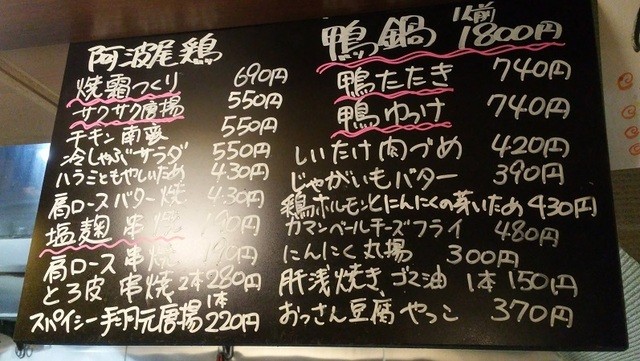 阿波尾鶏
焼霜つくり 690円
サクサク唐揚 550円
チキン南蛮 550円
冷しゃぶサラダ 550円
ハラミともやしいため 430円
肩ロースバター焼 430円
塩麹 串焼 190円
肩ロース 串焼 190円
とろ皮 串焼 2本 280円
スパイシー手羽元唐揚 1本 220円
鴨鍋 1人前 1800円
鴨たたき 740円
鴨ゆっけ 740円
しいたけ肉づめ 420円
じゃがいもバター 390円
鶏ホルモンとにんにくの芽いため 430円
カマンベールチーズフライ 480円
にんにく丸揚 300円
肝浅焼き ゴマ油 1本 150円
おっさん豆腐やっこ 370円